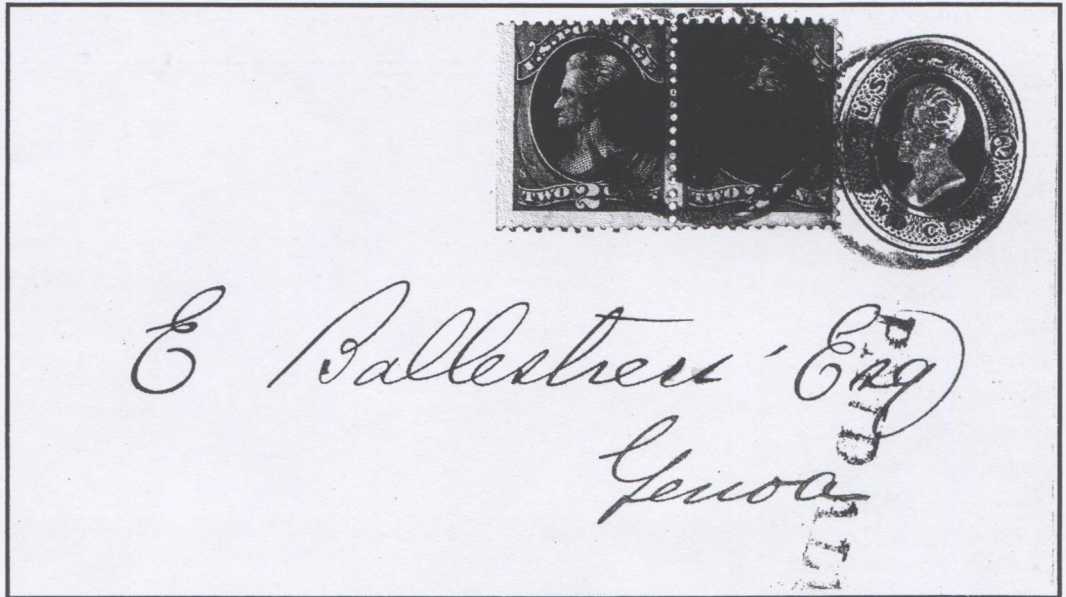 U.S. POSTAGE
TWO 2 TWO 2
U.S. PO
CE
E Ballestrero Esq
Genoa
PAID ALL